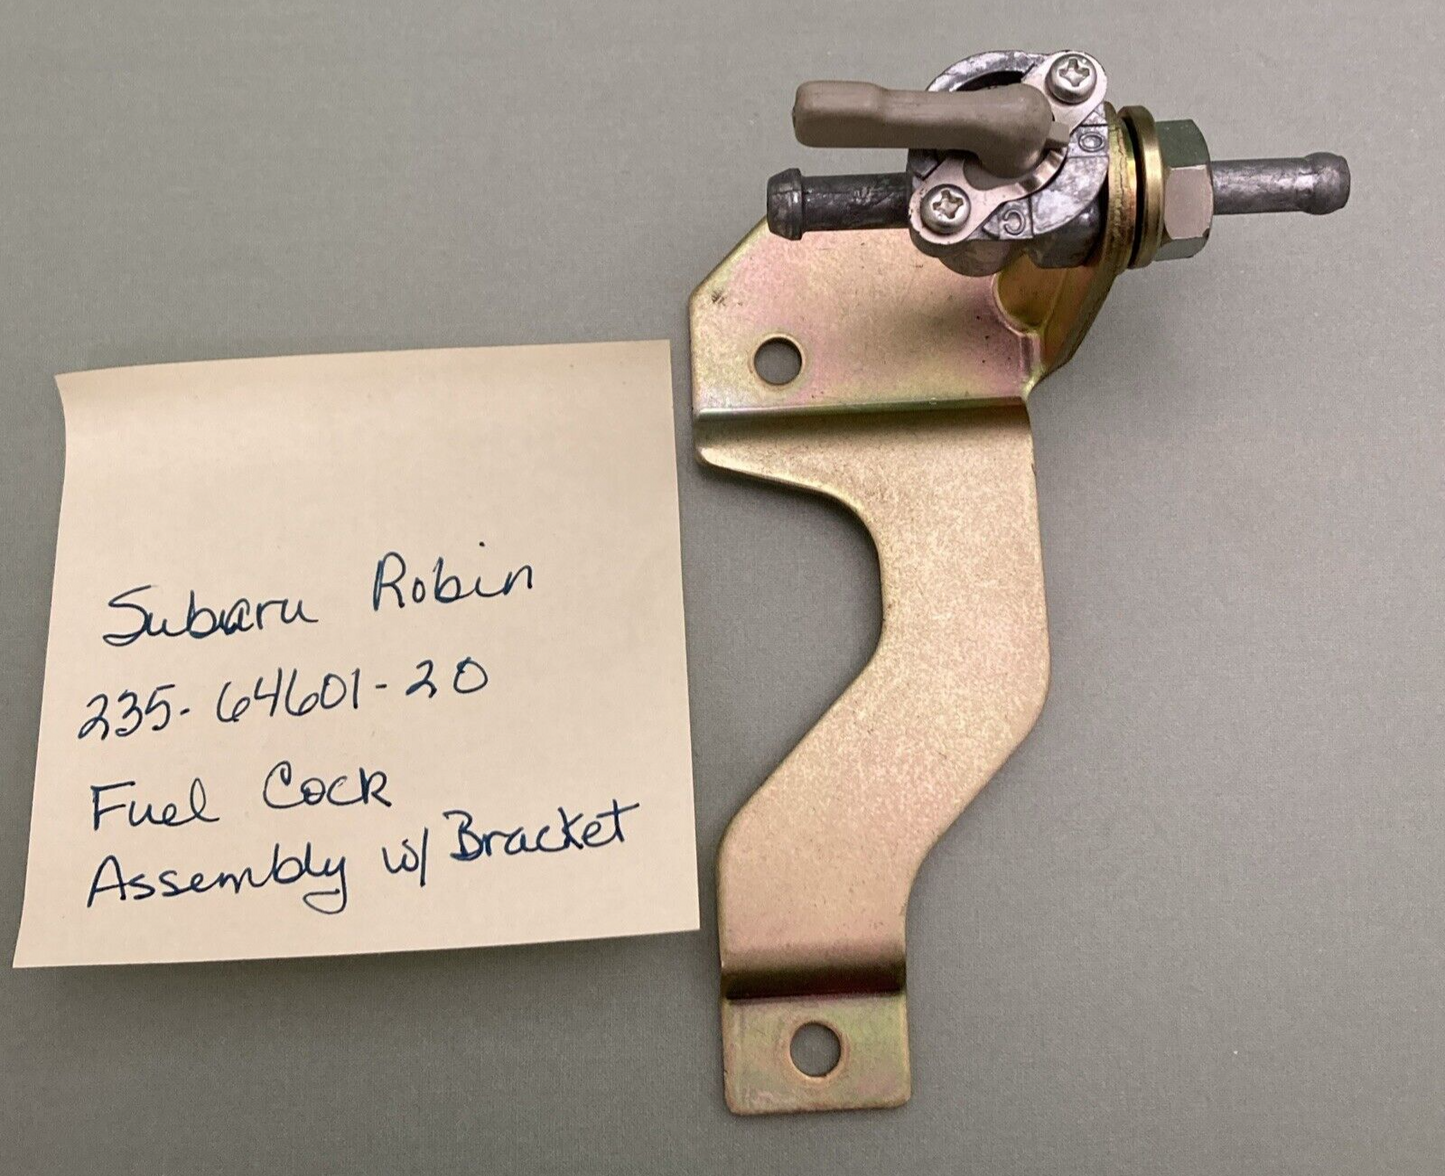 Subaru Robin
235-64601-20
Fuel Cock
Assembly w/ Bracket
O
C